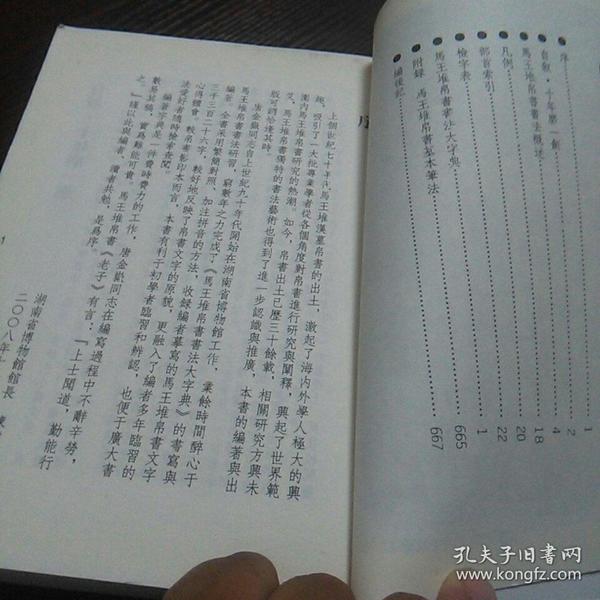 序 1
自敘·十年磨一劍 2
馬王堆帛書書法概述 4
凡例 18
部首索引 20
檢字表 22
馬王堆帛書書法大字典 1
附录 馬王堆帛書基本筆法 665
編後記 667
上個世紀七十年代馬王堆漢墓帛書的出土，激起了海内外學人極大的興
趣，吸引了一大批專業學者從各個角度對帛書進行研究與闡釋，興起了世界範
圍内馬王堆帛書研究的熱潮。如今，帛書出土已歷三十餘載，相關研究方興未
艾，馬王堆帛書獨特的書法藝術也得到了進一步認識與推廣，本書的編著與出
版可謂恰逢其時。
唐金嶽同志自上世紀九十年代開始在湖南省博物館工作，業餘時間醉心于
馬王堆帛書書法研習，窮數年之力完成了《馬王堆帛書書法大字典》的書寫與
編著。全書采用繁簡對照、加注拼音的方法，收録編者摹寫的馬王堆帛書文字
三千三百二十六字，較好地反映了帛書文字的原貌，更融入了編者多年臨習的
心得體會，較帛書影印本而言，本書有利于初學者臨習和辨認，也便于廣大書
法愛好者隨時檢字查閱。
編著字典是一件費時費力的工作，唐金嶽同志在編寫過程中不辭辛勞，
數易其稿，實爲難能可貴。馬王堆帛書《老子》有言：「上士聞道，勤能行
之。」謹以此與編者、讀者共勉，是爲序。
湖南省博物館館長
二〇〇八年
1
孔夫子旧書网
www.kongfz.com